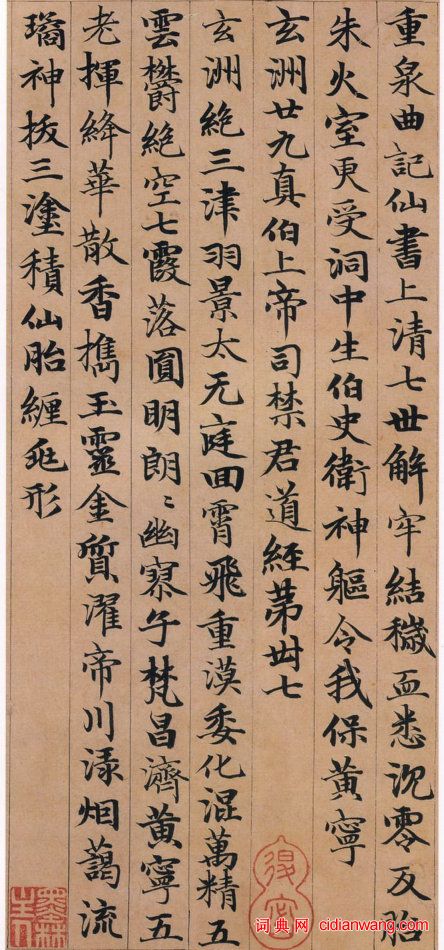 重泉曲記仙書上清七世解牢結穢血悉沉零反胎
朱火室更受洞中生伯史衛神軀令我保黃寧
玄洲廿九真伯上帝司禁君道經第卅七
玄洲絕三津羽景太无庭回霄飛重漠委化混萬精五
雲欝絕空七霞落圓明朗〻幽寥午梵昌濟黃寧五
老揮絳華散香攜玉靈金質濯帝川淥烟藹流
璚神拔三塗積仙胎纏死形
词典网 cidianwang.com